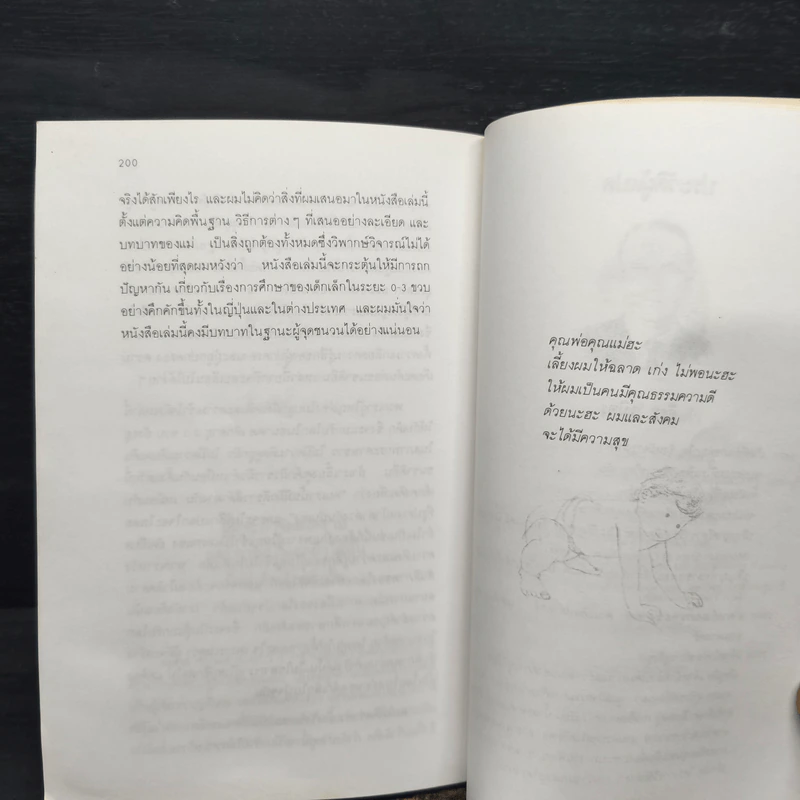 200
จริงได้สักเพียงไร และผมไม่คิดว่าสิ่งที่ผมเสนอมาในหนังสือเล่มนี้
ตั้งแต่ความคิดพื้นฐาน วิธีการต่าง ๆ ที่เสนออย่างละเอียด และ
บทบาทของแม่ เป็นสิ่งถูกต้องทั้งหมดซึ่งวิพากษ์วิจารณ์ไม่ได้
อย่างน้อยที่สุดผมหวังว่า หนังสือเล่มนี้จะกระตุ้นให้มีการถก
ปัญหากัน เกี่ยวกับเรื่องการศึกษาของเด็กเล็กในระยะ 0-3 ขวบ
อย่างคึกคักขึ้นทั้งในญี่ปุ่นและในต่างประเทศ และผมมั่นใจว่า
หนังสือเล่มนี้คงมีบทบาทในฐานะผู้จุดชนวนได้อย่างแน่นอน
คุณพ่อคุณแม่ฮะ
เลี้ยงผมให้ฉลาด เก่ง ไม่พอนะฮะ
ให้ผมเป็นคนมีคุณธรรมความดี
ด้วยนะฮะ ผมและสังคม
จะได้มีความสุข